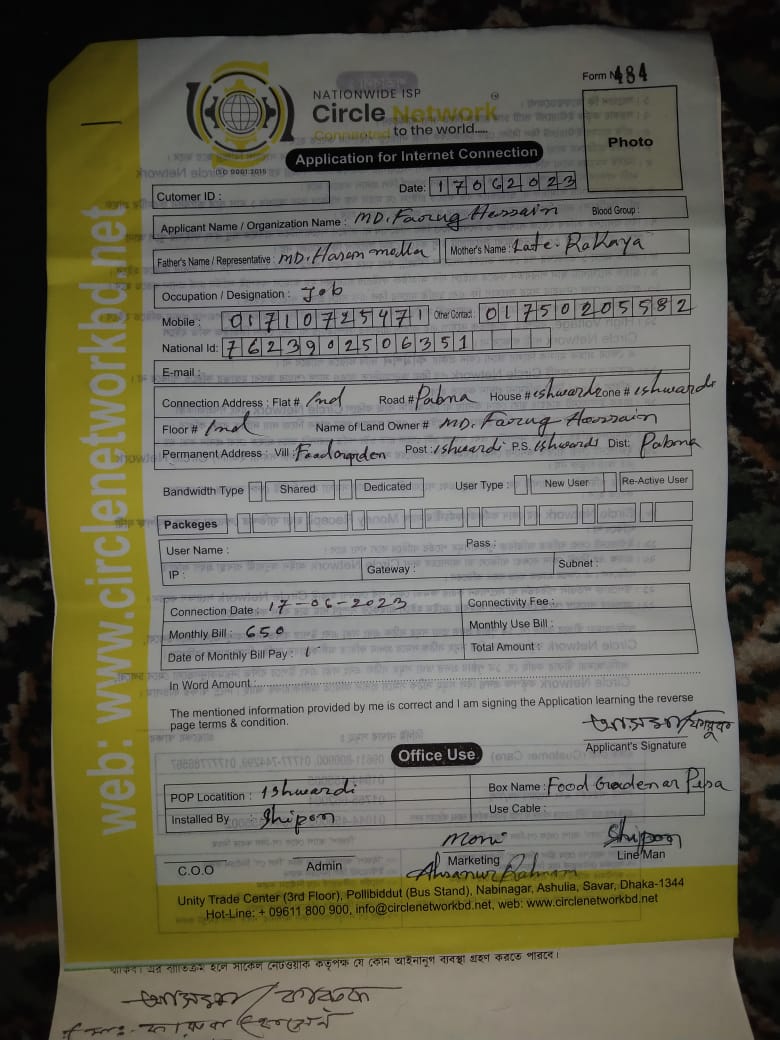 Form No 484
NATIONWIDE ISP
Circle Network
Connected to the world.....
ISO 9001:2015
Application for Internet Connection
Photo
Cutomer ID :
Date: 17062023
Applicant Name / Organization Name : MD. Faruq Hossain Blood Group :
Father's Name / Representative : MD. Hasan molla Mother's Name : Late. Rokaya
Occupation / Designation : Job
Mobile : 01710725471 Other Contact : 01750205582
National Id: 7623902506351
E-mail :
Connection Address : Flat # Ind Road # Pabna House # ishwardi Zone # ishwardi
Floor # Ind Name of Land Owner # MD. Faruq Hossain
Permanent Address : Vill : Post : ishwardi P.S. ishwardi Dist: Pabna
Bandwidth Type Shared Dedicated User Type : New User Re-Active User
Packeges
User Name : Pass :
IP : Gateway : Subnet :
Connection Date : 17-06-2023 Connectivity Fee :
Monthly Bill : 650 Monthly Use Bill :
Date of Monthly Bill Pay : Total Amount :
In Word Amount :
The mentioned information provided by me is correct and I am signing the Application learning the reverse
page terms & condition.
Applicant's Signature
Office Use
POP Locatition : Ishwardi Box Name : Food
Installed By : Shipon Use Cable :
Moni Shipon
C.O.O Admin Marketing Line Man
Ahsanur Rahman
Unity Trade Center (3rd Floor), Pollibiddut (Bus Stand), Nabinagar, Ashulia, Savar, Dhaka-1344
Hot-Line: + 09611 800 900, info@circlenetworkbd.net, web: www.circlenetworkbd.net
web: www.circlenetworkbd.net
থাকিব। এর ব্যতিক্রম হলে সার্কেল নেটওয়ার্ক কতৃপক্ষ যে কোন আইনানুগ ব্যবস্থা গ্রহণ করতে পারবে।